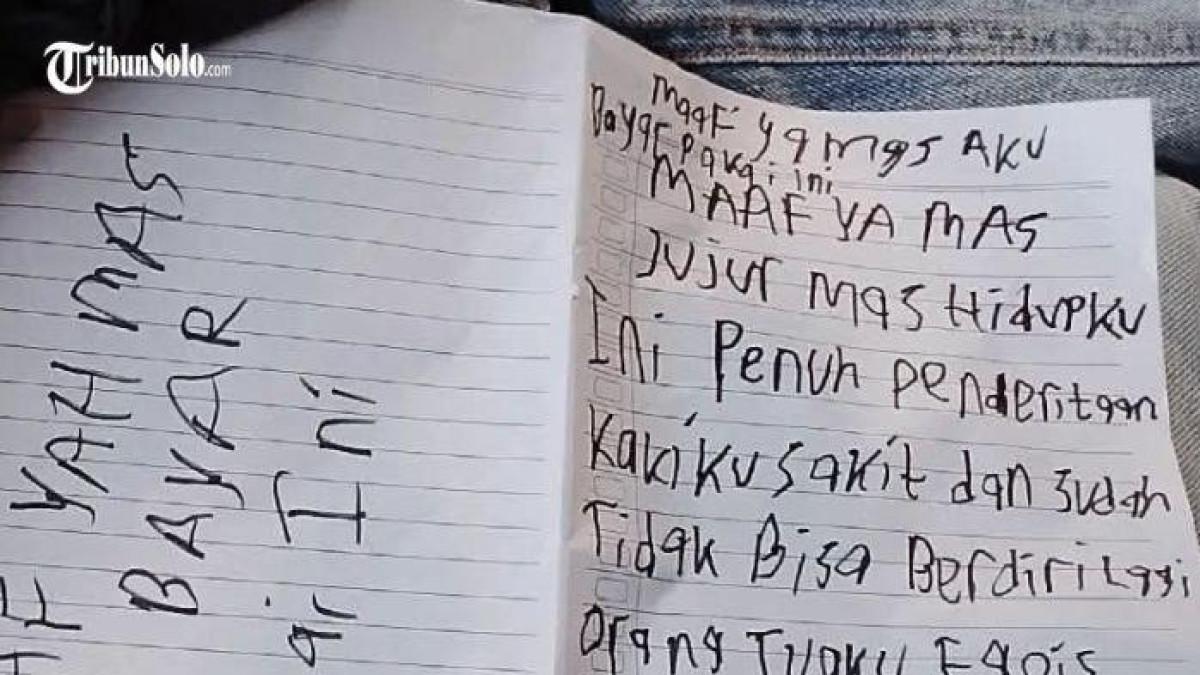 TribunSolo.com
YAH MAS
BAYAR
Ini
maaf ya mas AKU
Bayar pakai ini
MAAF YA MAS
Jujur mas HidupKu
Ini Penuh penderitaan
Kakiku sakit dan sudah
Tidak Bisa Berdiri Lagi
Orang Tuaku Egois